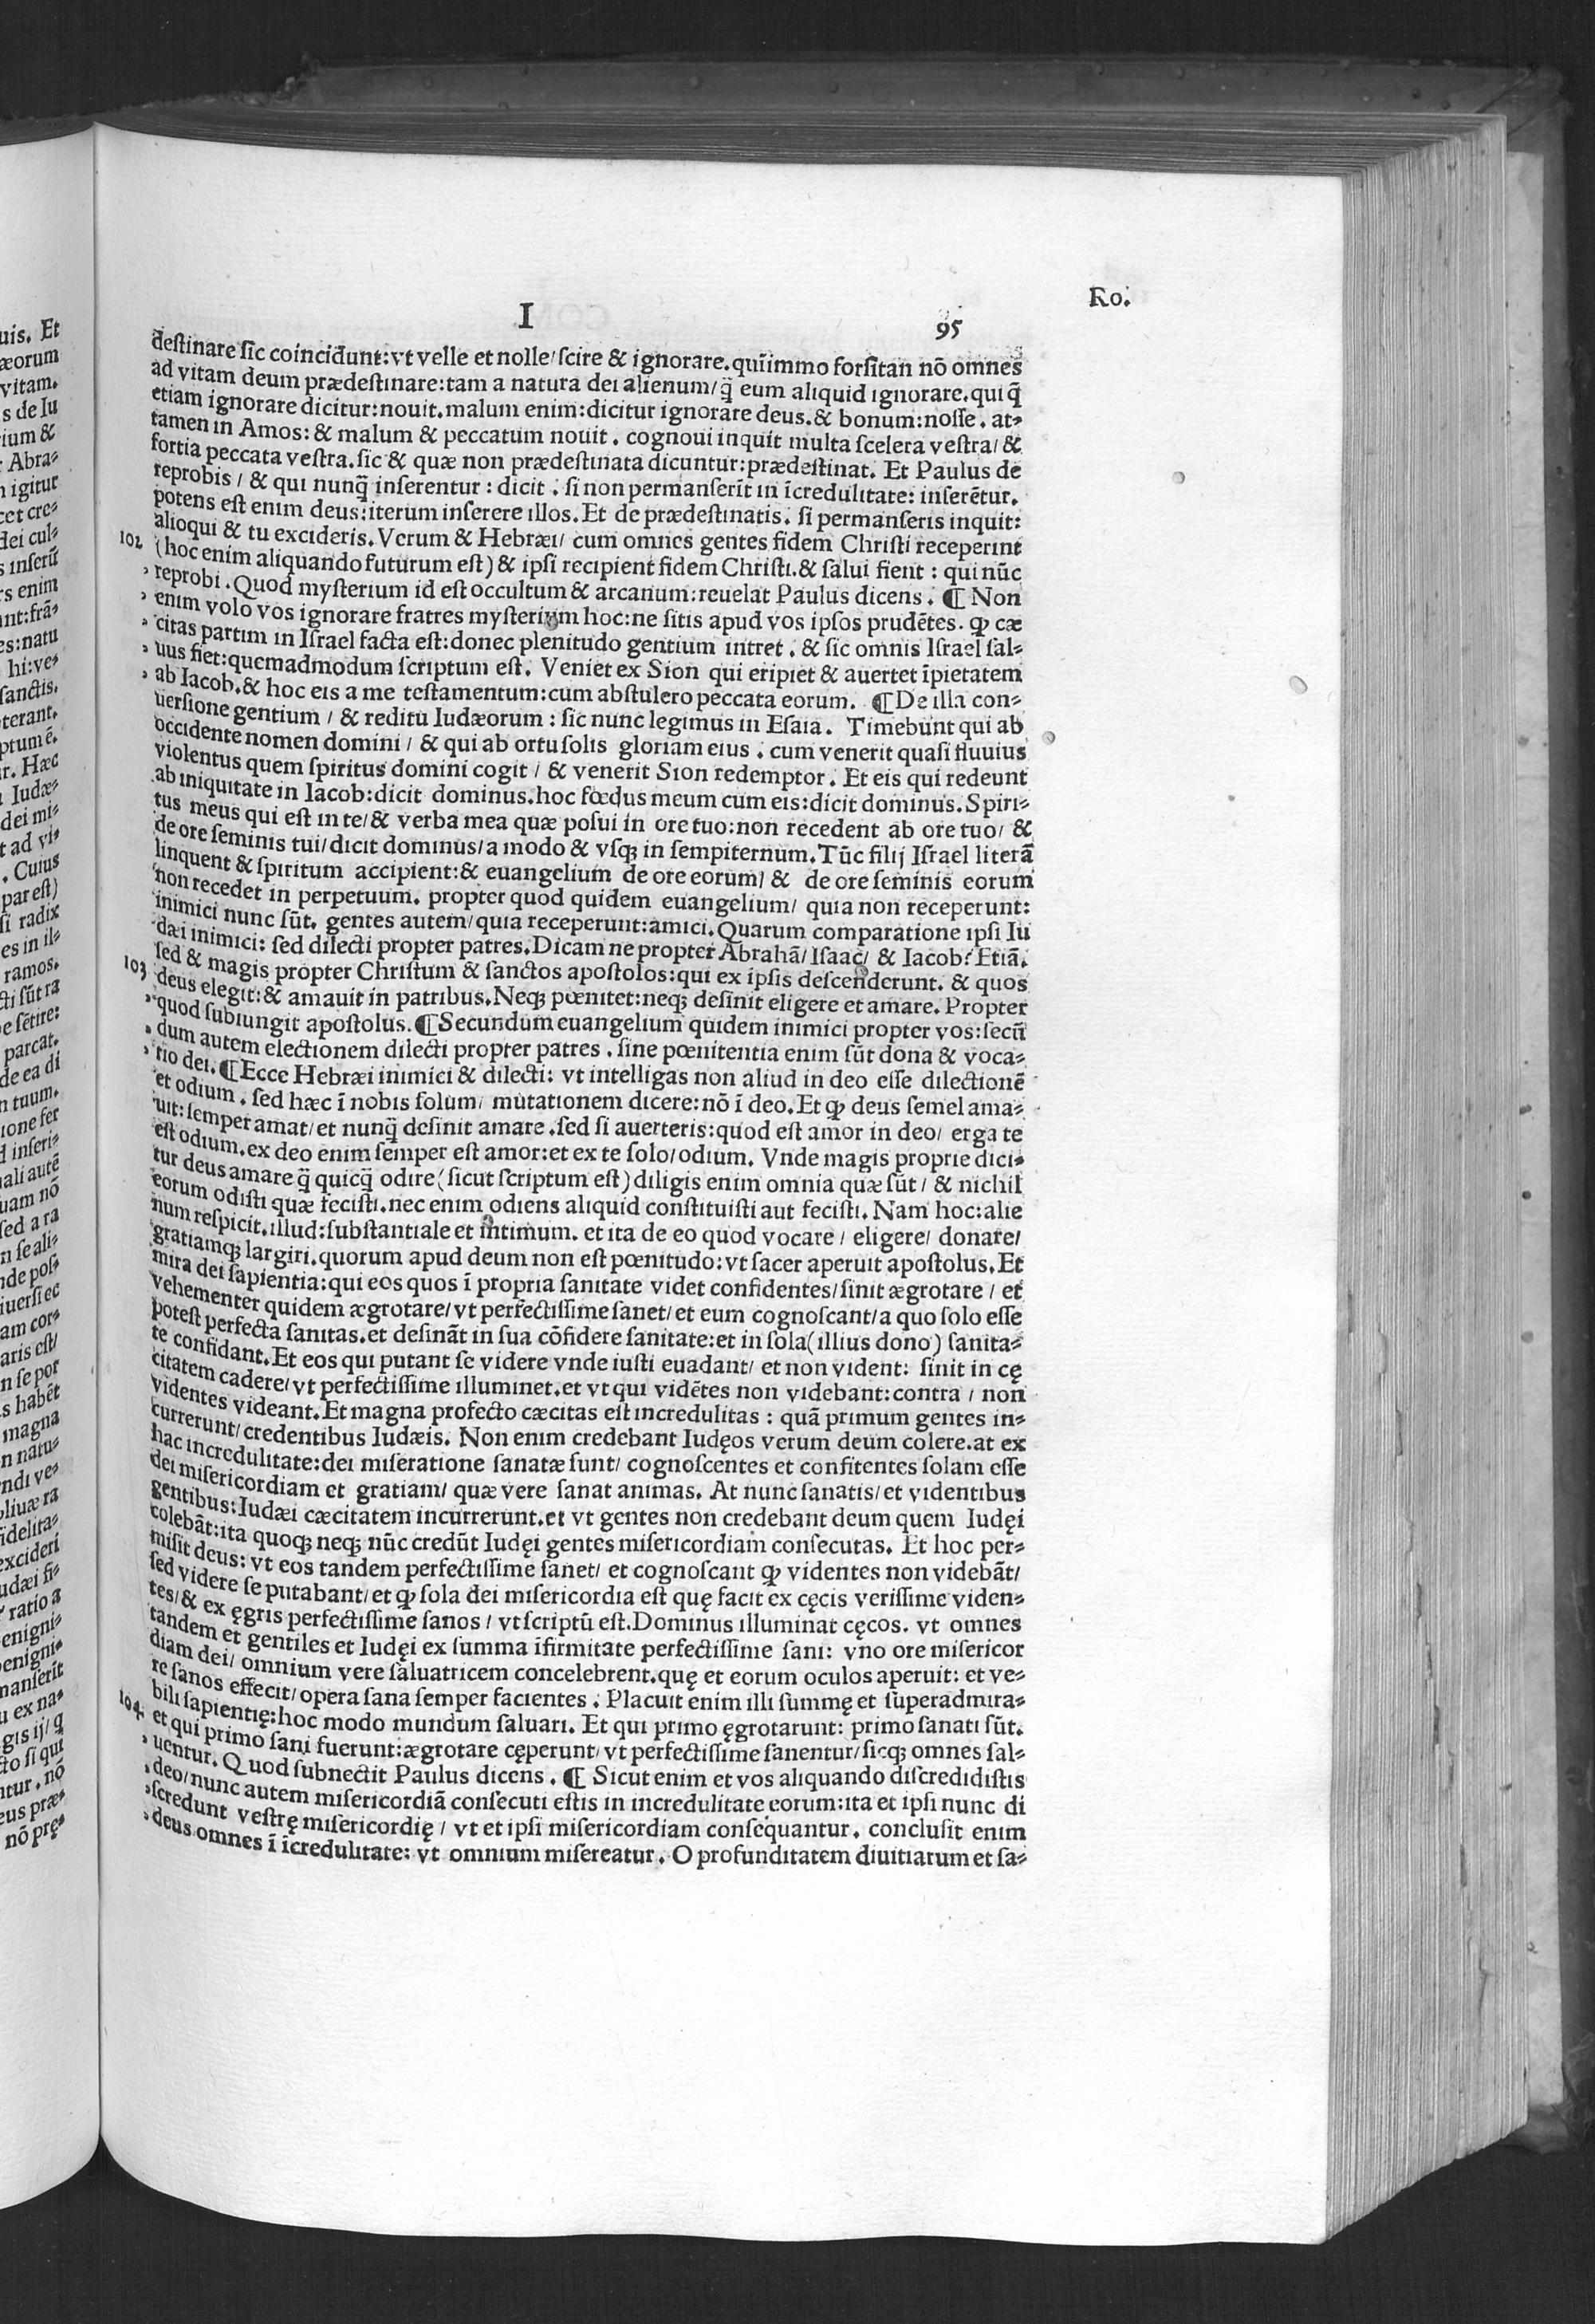 Ro.
I
95
destinare sic coincidunt:vt velle et nolle/scire & ignorare.quĩimmo forsitan nõ omnes
ad vitam deum prædestinare:tam a natura dei alienum/q̃ eum aliquid ignorare.qui q̃
etiam ignorare dicitur:nouit.malum enim:dicitur ignorare deus.& bonum:nosse. at-
tamen in Amos:& malum & peccatum nouit. cognoui inquit multa scelera vestra/ &
fortia peccata vestra.sic & quæ non prædestinata dicuntur:prædestinat. Et Paulus de
reprobis / & qui nunq̃ inserentur : dicit. si non permanserĩt in ĩcredulitate: inserẽtur.
potens est enim deus:iterum inserere illos.Et de prædestinatis. si permanseris inquit:
alioqui & tu excideris.Verum & Hebræi/ cum omnes gentes fidem Christi receperint
102 (hoc enim aliquando futurum est) & ipsi recipient fidem Christi.& salui fient : qui nũc
reprobi.Quod mysterium id est occultum & arcanum:reuelat Paulus dicens. ¶ Non
enim volo vos ignorare fratres mysterium hoc:ne sitis apud vos ipsos prudẽtes. ꝙ cæ
citas partim in Israel facta est:donec plenitudo gentium intret. & sic omnis Israel sal-
uus fiet:quemadmodum scriptum est. Veniet ex Sion qui eripiet & auertet ĩpietatem
ab Iacob.& hoc eis a me testamentum:cum abstulero peccata eorum. ¶De illa con-
uersione gentium / & reditu Iudæorum : sic nunc legimus in Esaia. Timebunt qui ab
occidente nomen domini / & qui ab ortu solis gloriam eius. cum venerit quasi fluuius
violentus quem spiritus domini cogit / & venerit Sion redemptor. Et eis qui redeunt
ab iniquitate in Iacob:dicit dominus.hoc fœdus meum cum eis:dicit dominus.Spiri-
tus meus qui est in te/& verba mea quæ posui in ore tuo:non recedent ab ore tuo/ &
de ore seminis tui/dicit dominus/a modo & vsqꝫ in sempiternum.Tũc filij Israel literã
linquent & spiritum accipient:& euangelium de ore eorum/ & de ore seminis eorum
non recedet in perpetuum. propter quod quidem euangelium/ quia non receperunt:
inimici nunc sũt. gentes autem/quia receperunt:amici.Quarum comparatione ipsi Iu
dæi inimici: sed dilecti propter patres.Dicam ne propter Abrahã/Isaac/ & Iacob? Etiã.
sed & magis propter Christum & sanctos apostolos:qui ex ipsis descenderunt. & quos
103 deus elegit:& amauit in patribus.Neqꝫ pœnitet:neqꝫ desinit eligere et amare. Propter
quod subiungit apostolus.¶Secundum euangelium quidem inimici propter vos:secũ
dum autem electionem dilecti propter patres. sine pœnitentia enim sũt dona & voca-
tio dei.¶Ecce Hebræi inimici & dilecti: vt intelligas non aliud in deo esse dilectionẽ
et odium. sed hæc ĩ nobis solum/ mutationem dicere:nõ ĩ deo.Et ꝙ deus semel ama-
uit:semper amat/et nunq̃ desinit amare.sed si auerteris:quod est amor in deo/ erga te
est odium.ex deo enim semper est amor:et ex te solo/odium. Vnde magis proprie dici-
tur deus amare q̃ quicq̃ odire(sicut scriptum est)diligis enim omnia quæ sũt/ & nichil
eorum odisti quæ fecisti.nec enim odiens aliquid constituisti aut fecisti. Nam hoc:alie
num respicit.illud:substantiale et intimum. et ita de eo quod vocare / eligere/ donare/
gratiamqꝫ largiri.quorum apud deum non est pœnitudo:vt sacer aperuit apostolus.Et
mira dei sapientia:qui eos quos ĩ propria sanitate videt confidentes/sinit ægrotare / et
vehementer quidem ægrotare/vt perfectissime sanet/et eum cognoscant/a quo solo esse
potest perfecta sanitas.et desinãt in sua cõfidere sanitate:et in sola(illius dono) sanita-
te confidant.Et eos qui putant se videre vnde iusti euadant/ et non vident: sinit in cę
citatem cadere/vt perfectissime illuminet.et vt qui vidẽtes non videbant:contra / non
videntes videant.Et magna profecto cæcitas est incredulitas : quã primum gentes in-
currerunt/credentibus Iudæis. Non enim credebant Iudęos verum deum colere.at ex
hac incredulitate:dei miseratione sanatæ sunt/ cognoscentes et confitentes solam esse
dei misericordiam et gratiam/ quæ vere sanat animas. At nunc sanatis/et videntibus
gentibus:Iudæi cæcitatem incurrerunt.et vt gentes non credebant deum quem Iudęi
colebãt:ita quoqꝫ neqꝫ nũc credũt Iudęi gentes misericordiam consecutas. Et hoc per-
misit deus: vt eos tandem perfectissime sanet/ et cognoscant ꝙ videntes non videbãt/
sed videre se putabant/et ꝙ sola dei misericordia est quę facit ex cęcis verissime viden-
tes/& ex ęgris perfectissime sanos / vt scriptũ est.Dominus illuminat cęcos. vt omnes
tandem et gentiles et Iudęi ex summa ĩfirmitate perfectissime sani: vno ore misericor
diam dei/ omnium vere saluatricem concelebrent.quę et eorum oculos aperuit: et ve-
re sanos effecit/opera sana semper facientes. Placuit enim illi summę et superadmira-
bili sapientię:hoc modo mundum saluari. Et qui primo ęgrotarunt: primo sanati sũt.
104 et qui primo sani fuerunt:ægrotare cęperunt/vt perfectissime sanentur/sicqꝫ omnes sal-
uentur.Quod subnectit Paulus dicens. ¶ Sicut enim et vos aliquando discredidistis
deo/nunc autem misericordiã consecuti estis in incredulitate eorum:ita et ipsi nunc di
scredunt vestrę misericordię / vt et ipsi misericordiam consequantur. conclusit enim
deus omnes ĩ ĩcredulitate: vt omnium misereatur. O profunditatem diuitiarum et sa-